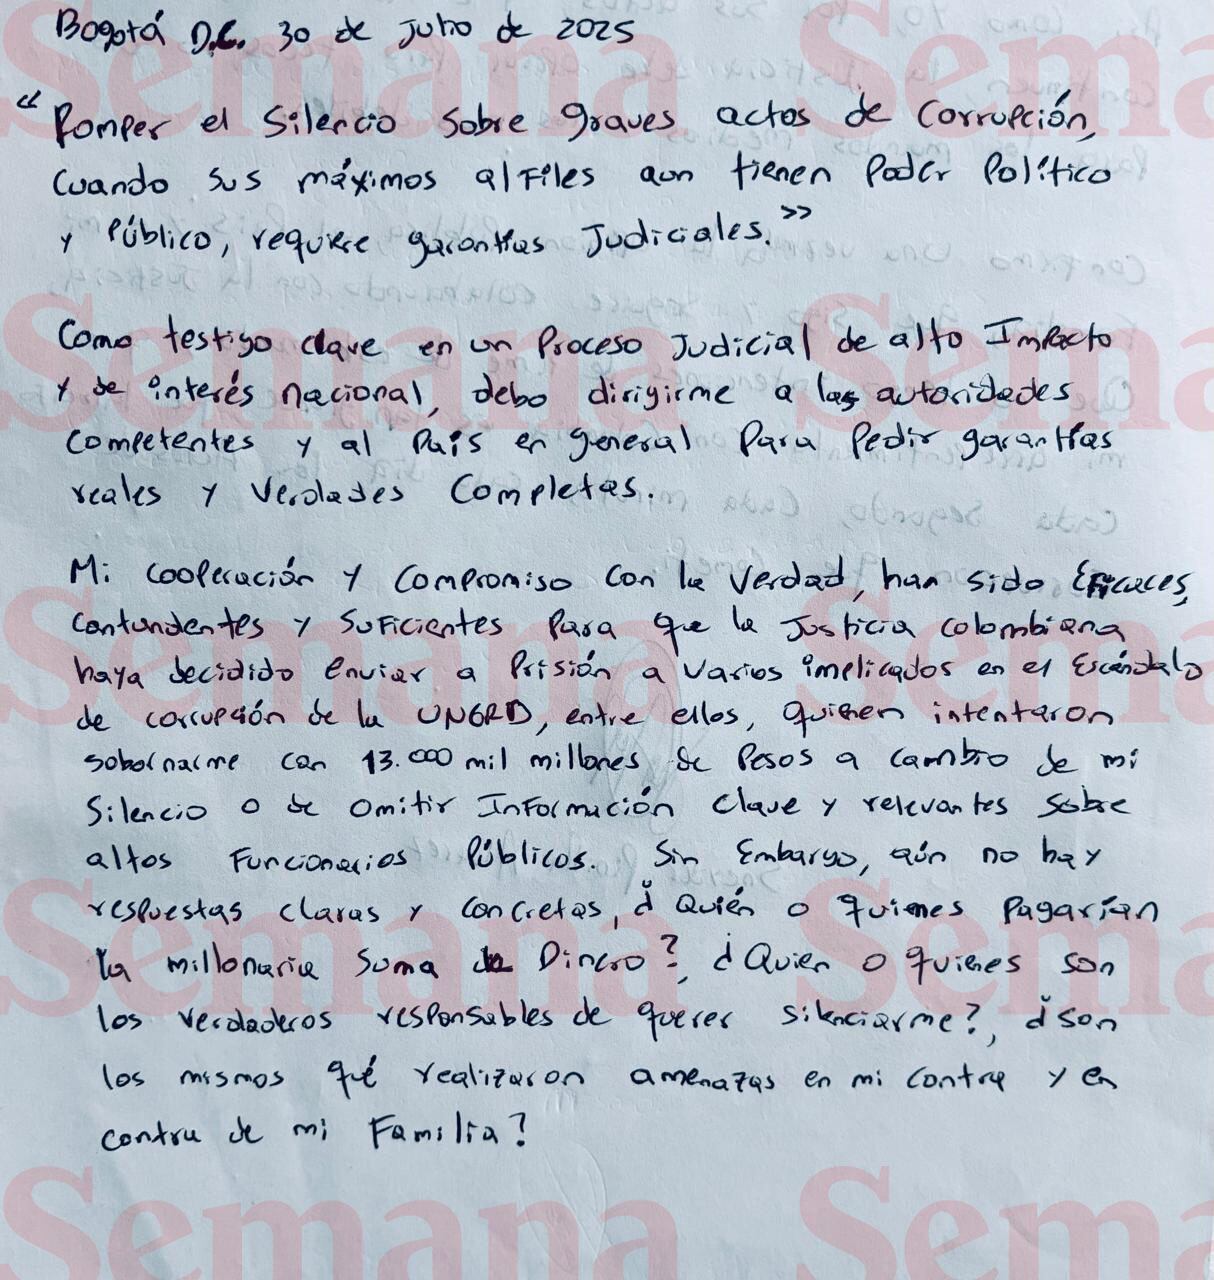 Bogotá D.C. 30 de Julio de 2025
"Romper el Silencio Sobre graves actos de Corrupción,
Cuando sus máximos alfiles aun tienen Poder Político
y Público, requiere garantías Judiciales."
Como testigo clave en un Proceso Judicial de alto Impacto
y de interés nacional, debo dirigirme a las autoridades
Competentes y al País en general Para Pedir garantías
reales y Verdades Completas.
Mi cooperación y Compromiso con la Verdad, han sido Eficaces,
Contundentes y Suficientes Para que la Justicia colombiana
haya decidido enviar a Prisión a varios implicados en el Escándalo
de corrupción de la UNGRD, entre ellos, quienen intentaron
sobornarme con 13.000 mil millones de Pesos a cambio de mi
Silencio o de omitir Información Clave y relevantes Sobre
altos Funcionarios Públicos. Sin Embargo, aún no hay
respuestas claras y Concretas, ¿Quién o quienes Pagarían
la millonaria Suma de Dinero?, ¿Quien o quienes son
los verdaderos responsables de querer silenciarme?, ¿son
los mismos qué realizaron amenazas en mi contra y en
contra de mi Familia?
Semana